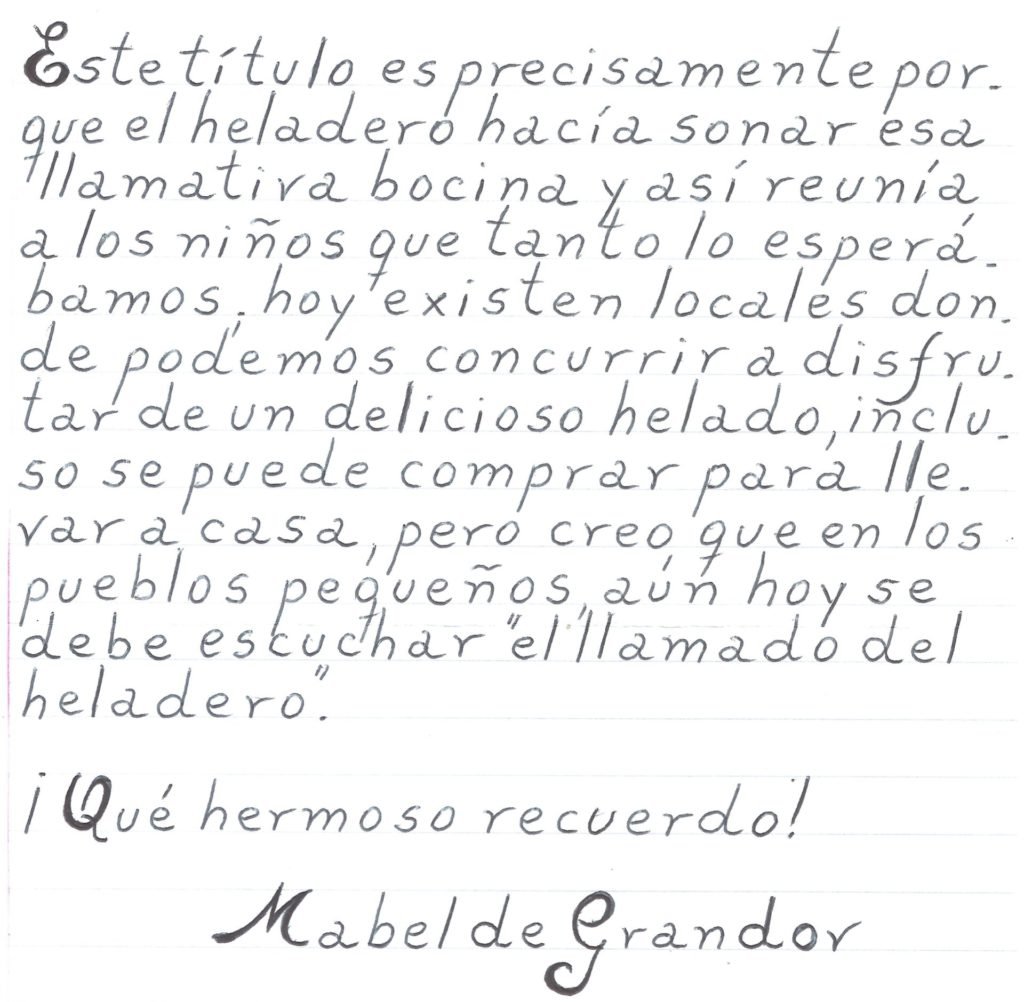 Este título es precisamente por-
que el heladero hacía sonar esa
llamativa bocina y así reunía
a los niños que tanto lo esperá-
bamos; hoy existen locales don-
de podemos concurrir a disfru-
tar de un delicioso helado, inclu-
so se puede comprar para lle-
var a casa, pero creo que en los
pueblos pequeños, aún hoy se
debe escuchar "el llamado del
heladero".
¡Qué hermoso recuerdo!
Mabel de Grandor